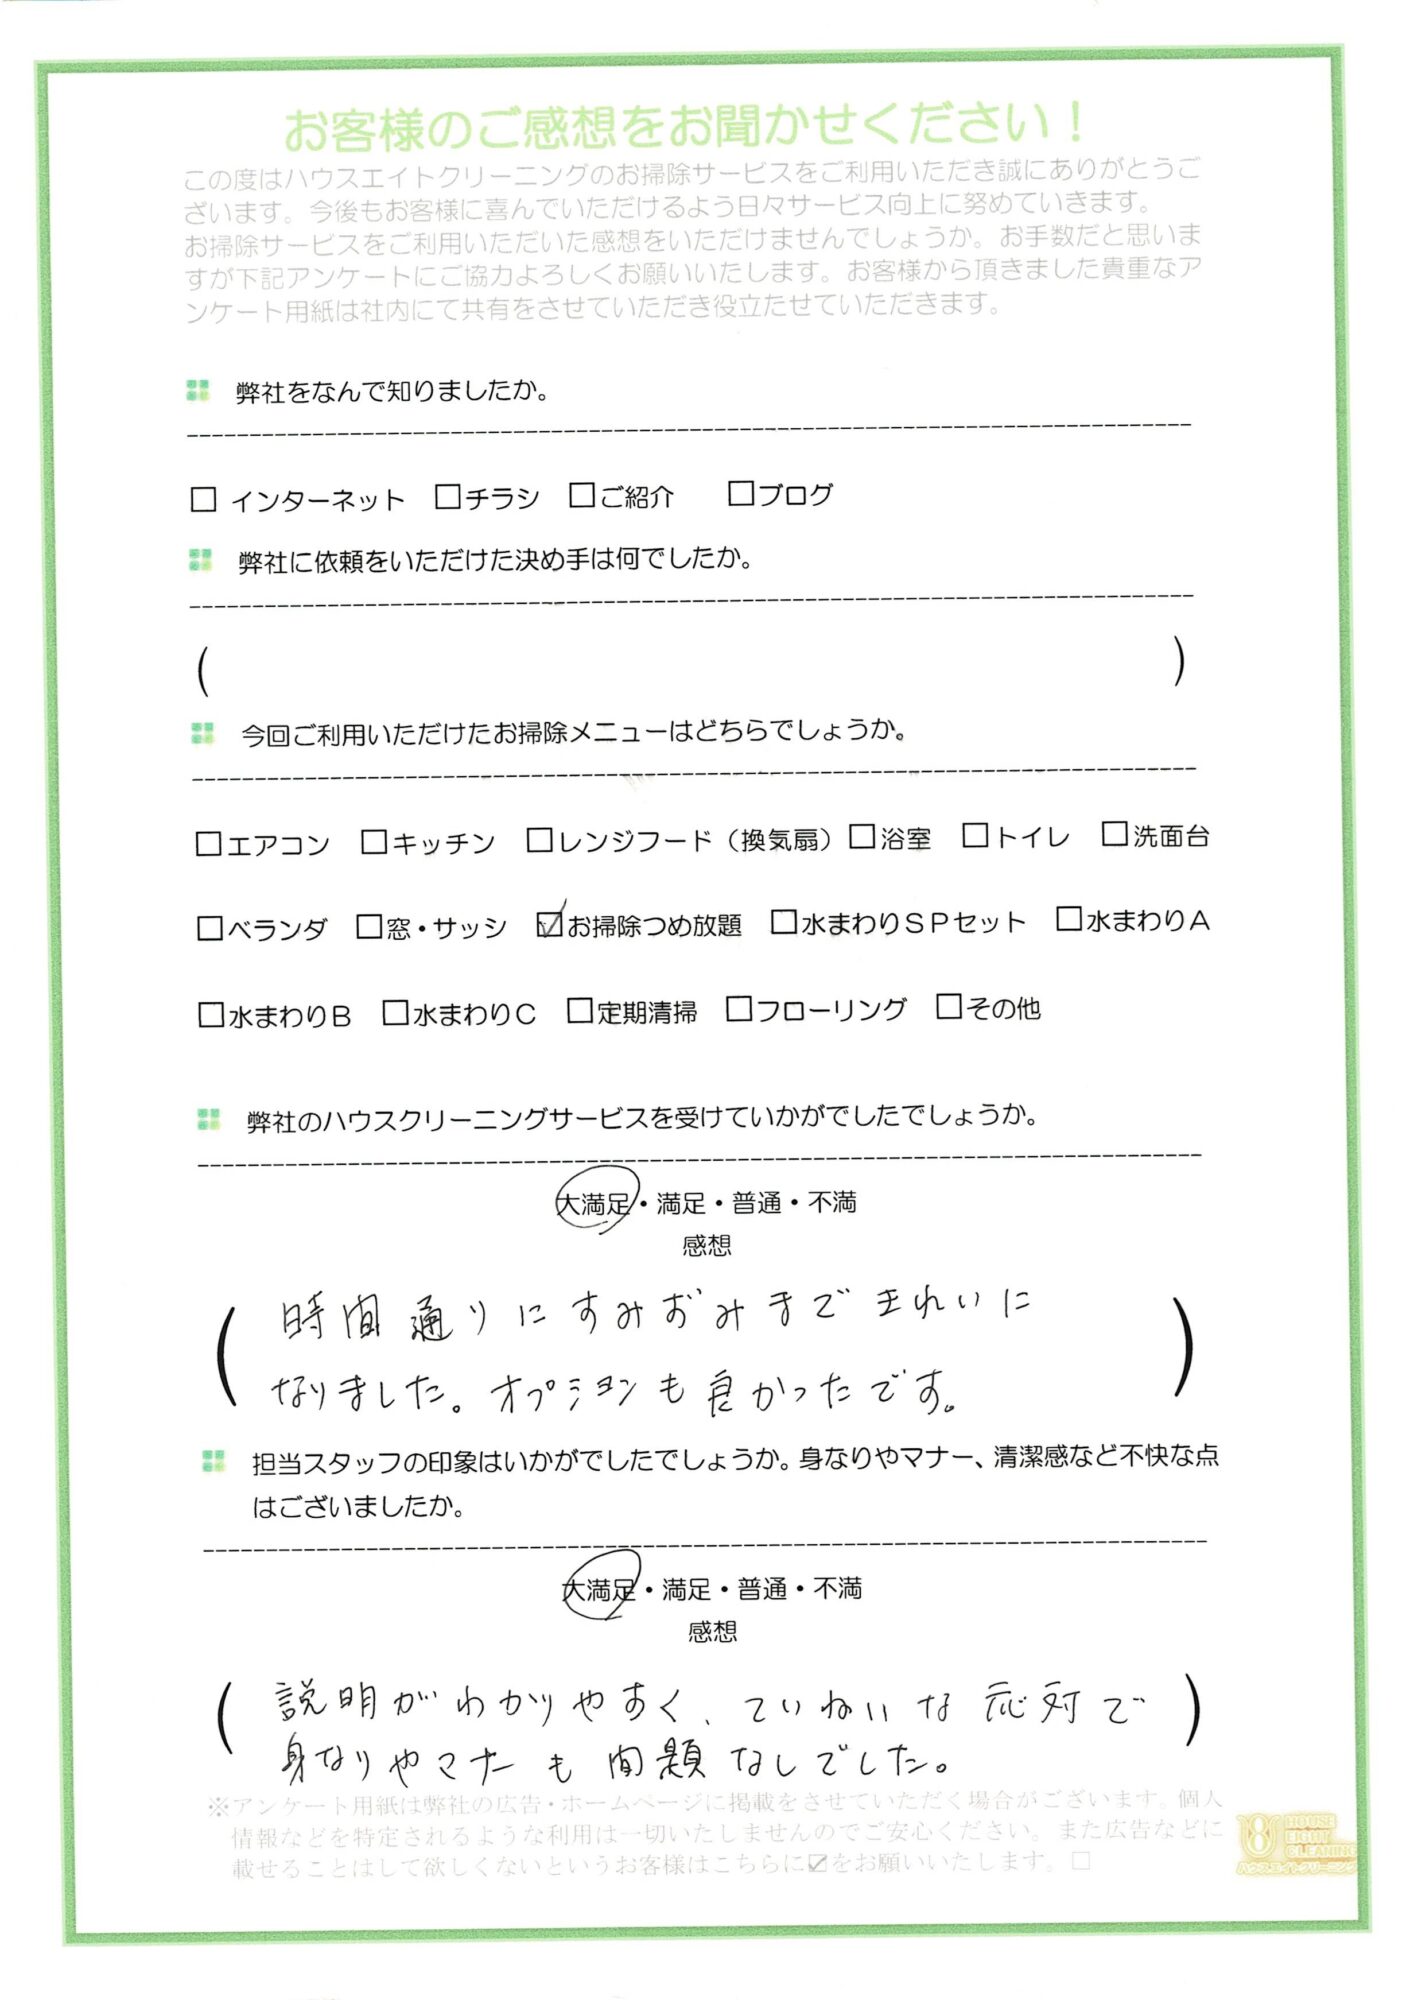 お客様のご感想をお聞かせください！
この度はハウスエイトクリーニングのお掃除サービスをご利用いただき誠にありがとうご
ざいます。今後もお客様に喜んでいただけるよう日々サービス向上に努めていきます。
お掃除サービスをご利用いただいた感想をいただけませんでしょうか。お手数だと思いま
すが下記アンケートにご協力よろしくお願いいたします。お客様から頂きました貴重なア
ンケート用紙は社内にて共有をさせていただき役立たせていただきます。
弊社をなんで知りましたか。
□ インターネット □チラシ □ご紹介 □ブログ
弊社に依頼をいただけた決め手は何でしたか。
（ ）
今回ご利用いただけたお掃除メニューはどちらでしょうか。
□エアコン □キッチン □レンジフード（換気扇）□浴室 □トイレ □洗面台
□ベランダ □窓・サッシ ☑お掃除つめ放題 □水まわりＳＰセット □水まわりＡ
□水まわりＢ □水まわりＣ □定期清掃 □フローリング □その他
弊社のハウスクリーニングサービスを受けていかがでしたでしょうか。
大満足・満足・普通・不満
感想
（時間通りにすみずみまできれいに
なりました。オプションも良かったです。）
担当スタッフの印象はいかがでしたでしょうか。身なりやマナー、清潔感など不快な点
はございましたか。
大満足・満足・普通・不満
感想
（説明がわかりやすく、ていねいな応対で
身なりやマナーも問題なしでした。）
※アンケート用紙は弊社の広告・ホームページに掲載をさせていただく場合がございます。個人
情報などを特定されるような利用は一切いたしませんのでご安心ください。また広告などに
載せることはして欲しくないというお客様はこちらに☑をお願いいたします。□
HOUSE
EIGHT
CLEANING
ハウスエイトクリーニング